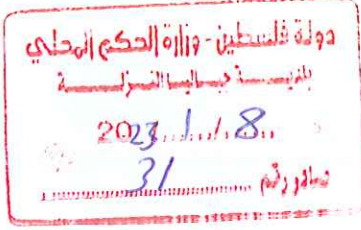 دولة فلسطين - وزارة الحكم المحلي
بلديـــة جباليا النـزلــة
2023/1/8
صادر رقم 31